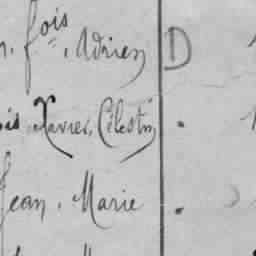 fois, Adrien D
is Xavier, Célestin .
Jean, Marie .